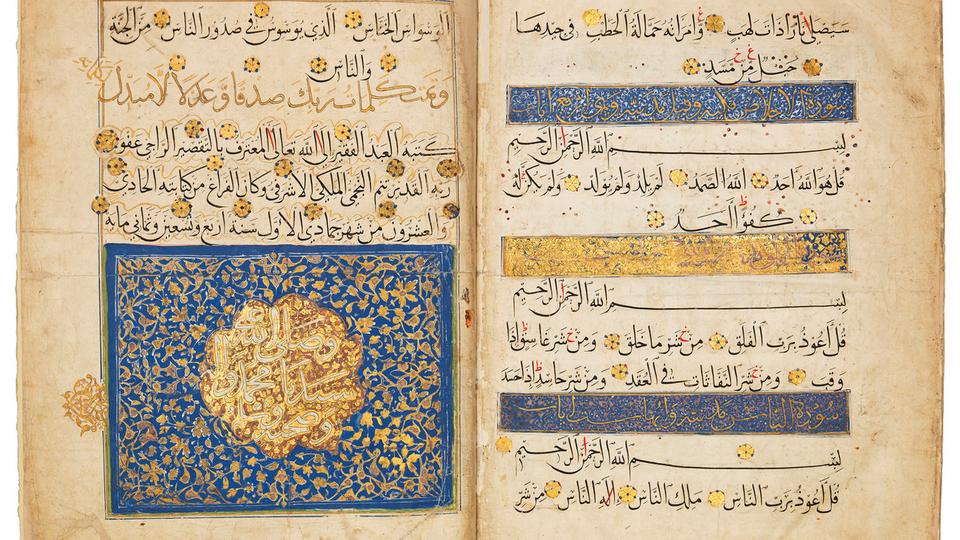 سَيَصْلَىٰ نَارًا ذَاتَ لَهَبٍ وَامْرَأَتُهُ حَمَّالَةَ الْحَطَبِ فِي جِيدِهَا
حَبْلٌ مِنْ مَسَدٍ
سورة الاخلاص
بِسْمِ اللَّهِ الرَّحْمَٰنِ الرَّحِيمِ
قُلْ هُوَ اللَّهُ أَحَدٌ اللَّهُ الصَّمَدُ لَمْ يَلِدْ وَلَمْ يُولَدْ وَلَمْ يَكُنْ لَهُ
كُفُوًا أَحَدٌ
بِسْمِ اللَّهِ الرَّحْمَٰنِ الرَّحِيمِ
قُلْ أَعُوذُ بِرَبِّ الْفَلَقِ مِنْ شَرِّ مَا خَلَقَ وَمِنْ شَرِّ غَاسِقٍ إِذَا
وَقَبَ وَمِنْ شَرِّ النَّفَّاثَاتِ فِي الْعُقَدِ وَمِنْ شَرِّ حَاسِدٍ إِذَا حَسَدَ
سورة الناس ست ايات
بِسْمِ اللَّهِ الرَّحْمَٰنِ الرَّحِيمِ
قُلْ أَعُوذُ بِرَبِّ النَّاسِ مَلِكِ النَّاسِ إِلَٰهِ النَّاسِ مِنْ شَرِّ
الْوَسْوَاسِ الْخَنَّاسِ الَّذِي يُوَسْوِسُ فِي صُدُورِ النَّاسِ مِنَ الْجِنَّةِ
وَالنَّاسِ
وَتَمَّتْ كَلِمَاتُ رَبِّكَ صِدْقًا وَعَدْلًا لَا مُبَدِّلَ
كتبه العبد الفقير الى الله تعالى المعترف بالتقصير الراجي عفو
ربه القدير النجمي الملكي الاشرفي وكان الفراغ من كتابته الحادي
والعشرون من شهر جمادي الاول سنة اربع وتسعين وثماني مايه
وصلى الله
سيدنا محمد
وصحبه